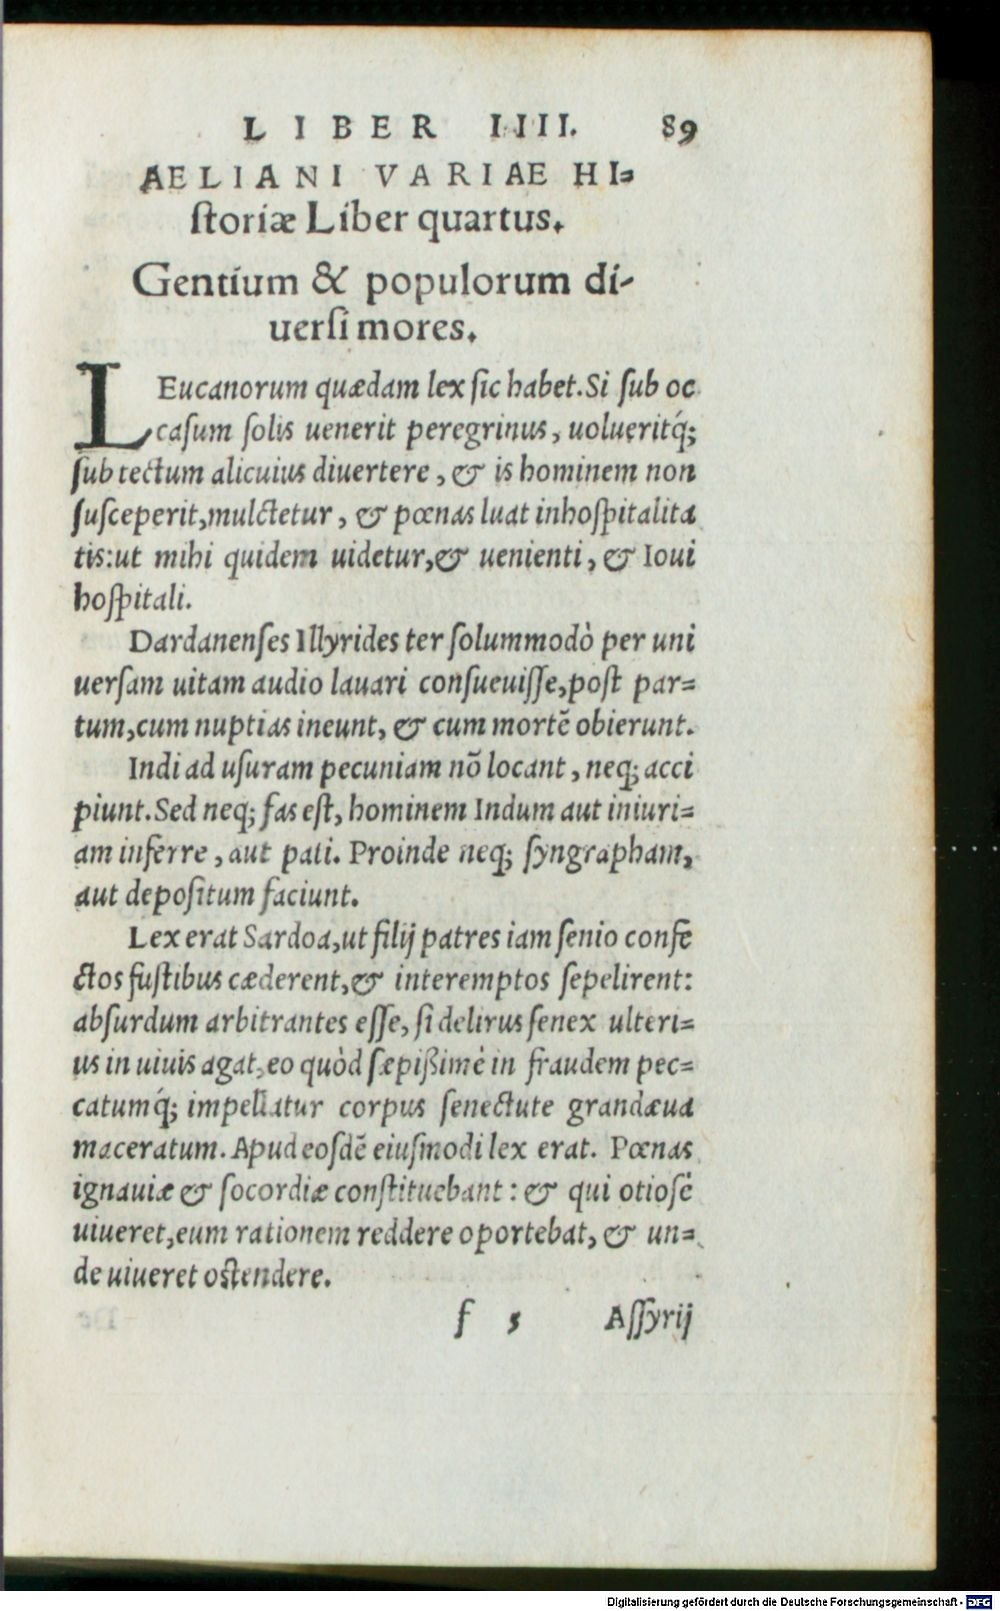 LIBER IIII. 89
AELIANI VARIAE HI=
ſtoriæ Liber quartus.
Gentium & populorum di-
uerſi mores.
LEucanorum quædam lex ſic habet. Si ſub oc
caſum ſolis uenerit peregrinus, uolueritq́;
ſub tectum alicuius diuertere, & is hominem non
ſuſceperit, mulctetur, & pœnas luat inhoſpitalita
tis: ut mihi quidem uidetur, & uenienti, & Ioui
hoſpitali.
Dardanenſes Illyrides ter ſolummodò per uni
uerſam uitam audio lauari conſueuiſſe, poſt par=
tum, cum nuptias ineunt, & cum mortē obierunt.
Indi ad uſuram pecuniam nō locant, neq; acci
piunt. Sed neq; fas eſt, hominem Indum aut iniuri=
am inferre, aut pati. Proinde neq; ſyngrapham,
aut depoſitum faciunt.
Lex erat Sardoa, ut filij patres iam ſenio confe
ctos fuſtibus cæderent, & interemptos ſepelirent:
abſurdum arbitrantes eſſe, ſi delirus ſenex ulteri=
us in uiuis agat, eo quòd ſæpißimè in fraudem pec=
catumq́; impellatur corpus ſenectute grandæua
maceratum. Apud eoſdē eiuſmodi lex erat. Pœnas
ignauiæ & ſocordiæ conſtituebant: & qui otioſè
uiueret, eum rationem reddere oportebat, & un=
de uiueret oſtendere.
f 5 Aſſyrij
Digitalisierung gefördert durch die Deutsche Forschungsgemeinschaft - DFG